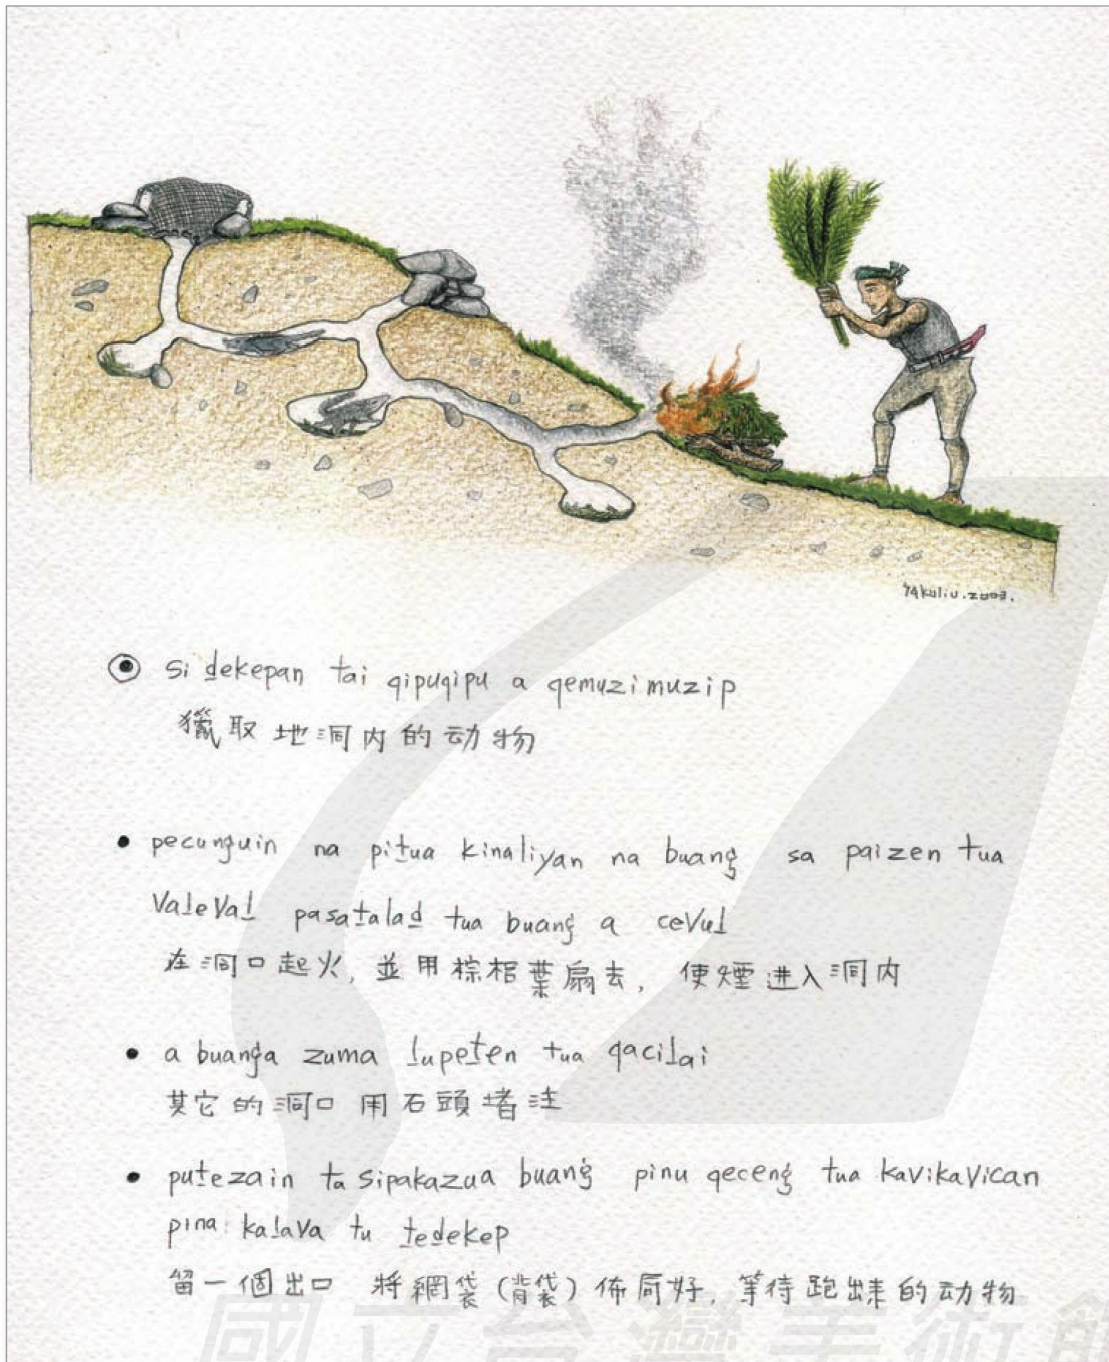 Sakuliu.2003.
si ḏekepan tai qipuqipu a qemuzimuzip
獵取地洞内的动物
pecunguin na piṯua kinaliyan na buang sa paizen tua
vaḻevaḻ pasaṯalaḏ tua buang a cevuḻ
在洞口起火, 並用棕梠葉扇去, 使煙进入洞内
a buanga zuma ḻupeṯen tua qaciḻai
其它的洞口用石頭堵注
puṯezain ta sipakazua buang pinu qeceng tua kavikavican
pina kaḻava tu ṯeḏekep
留一個出口 將網袋(背袋)佈局好, 等待跑出來的动物
國立台灣美術館